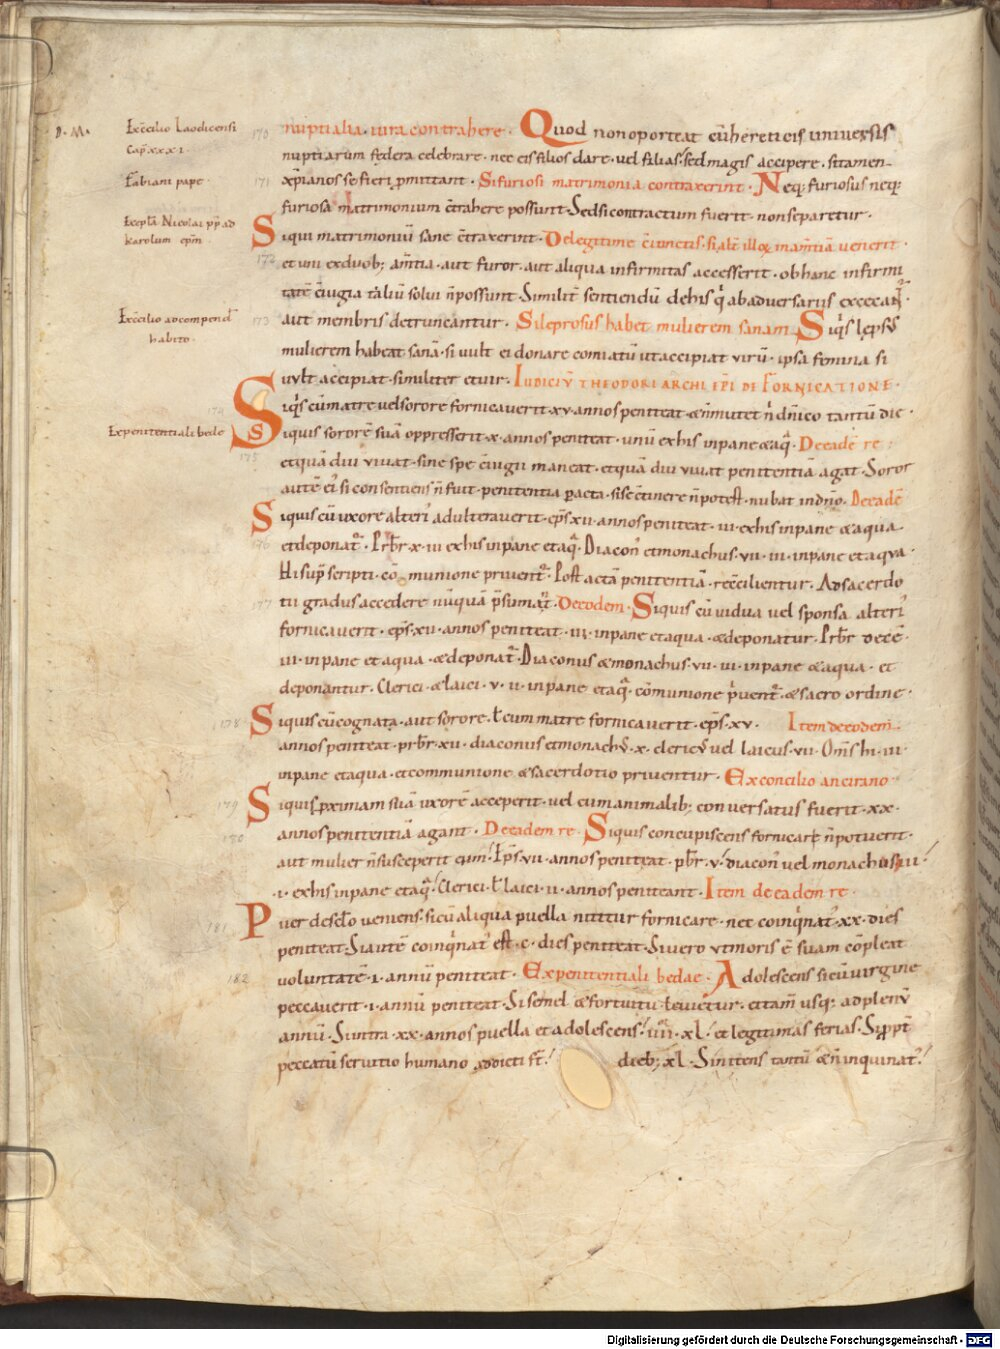 D. M.
Ex c̄cilio Laodicensi
Cap̄ xxxi.
Fabiani pape.
Nicolai pp̄ ad
karolum ep̄m
Ex c̄cilio ad compend̄
habito.
Ex penitentiali bede
nuptialia iura contrahere. Quod non oporteat cū hereticis universis
nuptiarum federa celebrare. nec eis filios dare. vel filias. sed magis accipere. si tamen
xp̄ianos se fieri ꝓmittant. Si furiosi matrimonia contraxerint. Neq; furiosus neq;
furiosa matrimonium c̄trahere possunt. Sed si contractum fuerit. non separetur.
172
Siqui matrimoniū sane c̄traxerint. De legitime c̄iunctis. si alt̄ illoꝝ in am̄tiā venerit.
et uni ex duob; am̄tia. aut furor. aut aliqua infirmitas accesserit. ob hanc infirmi
tatē c̄iugia taliū solui n̄ possunt. Similit̄ sentiendū de his q̄ ab adversariis excecant̄.
173
aut membris detruncantur. Si leprosus habet mulierem sanam. Siq̄s leps̄
mulierem habeat sanā. si vult ei donare comiatū ut accipiat virū. ipsa femina si
vult accipiat. similiter et vir. Iudiciū Theodori archiep̄i de fornicatione.
174
Siq̄s cū matre vel sorore fornicaverit. xv. annos peniteat. & n̄ mutet n̄ dn̄ico tantū die.
175
Siquis sororē suā oppresserit. x. annos peniteat. unū ex his in pane & aq̄. De eadē re:
et quādiu vivat. sine spe c̄iugii maneat. et quādiu vivat penitentiā agat. Soror
autē ei si consentiens n̄ fuit. penitentia peracta. si se c̄tinere n̄ potest. nubat in dn̄o. De eadē
176
Siquis cū uxore alteri adulteraverit. ep̄s xii. annos peniteat. iii. ex his in pane & aqua
et deponat. Prb̄r. x. iii ex his in pane et aq̄. Diacon̄ et monachus. vii. iii. in pane et aqua.
Hi sup̄scripti. cō munione privent̄. Post actā penitentiā. rec̄cilientur. Ad sacerdo
177
tii gradus accedere nūquā p̄sumat̄. De eodem. Siquis cū vidua vel sponsa alteri
fornicaverit. ep̄s. xii. annos peniteat. iii. in pane et aqua. & deponatur. Prb̄r decē.
iii. in pane et aqua. & deponat̄. Diaconus & monachus. vii. iii. in pane & aqua. et
deponantur. Clerici. & laici. v. ii. in pane et aq̄. cōmunione p̄vent̄. & sacro ordine.
178
Siquis cū cognata. aut sorore. ł cum matre fornicaverit. ep̄s. xv. Item de eodem.
annos peniteat. prb̄r. xii. diaconus et monach9. x. cleric9 vel laicus. vii. Om̄s hi. iii.
in pane et aqua. et communione & sacerdotio priventur. Ex concilio ancirano
179
Siquis ꝓximam suā uxorē acceperit. vel cum animalib; conversatus fuerit. xx.
180
annos penitentiā agant. De eadem re. Siquis concupiscens fornicare n̄ potuerit.
aut mulier n̄ susceperit eum. Ep̄s. vii. annos peniteat. pb̄r. v. diacon̄ vel monachus. iii.
.i. ex his in pane et aq̄. Clerici. ł laici. ii. annos peniteant. Item de eadem re.
181
Puer de sclō veniens. si cū aliqua puella nititur fornicare. nec coinq̄nat̄. xx. dies
peniteat. Si autē coinq̄nat̄ est. c. dies peniteat. Si vero ut moris ē suam cōpleat
182
voluntatē. i. annū peniteat. Ex penitentiali bedae. Adolescens si cū virgine
peccaverit. i. annū peniteat. Si semel & fortuitu. levietur. et tam̄ usq; ad plenū
annū. Si intra. xx. annos puella et adolescens. iii. xl. et legitimas ferias. Si ꝓpt̄
peccatū servitio humano addicti st̄. dieb; xl. Si nitens tantū & n̄ inquinat̄.